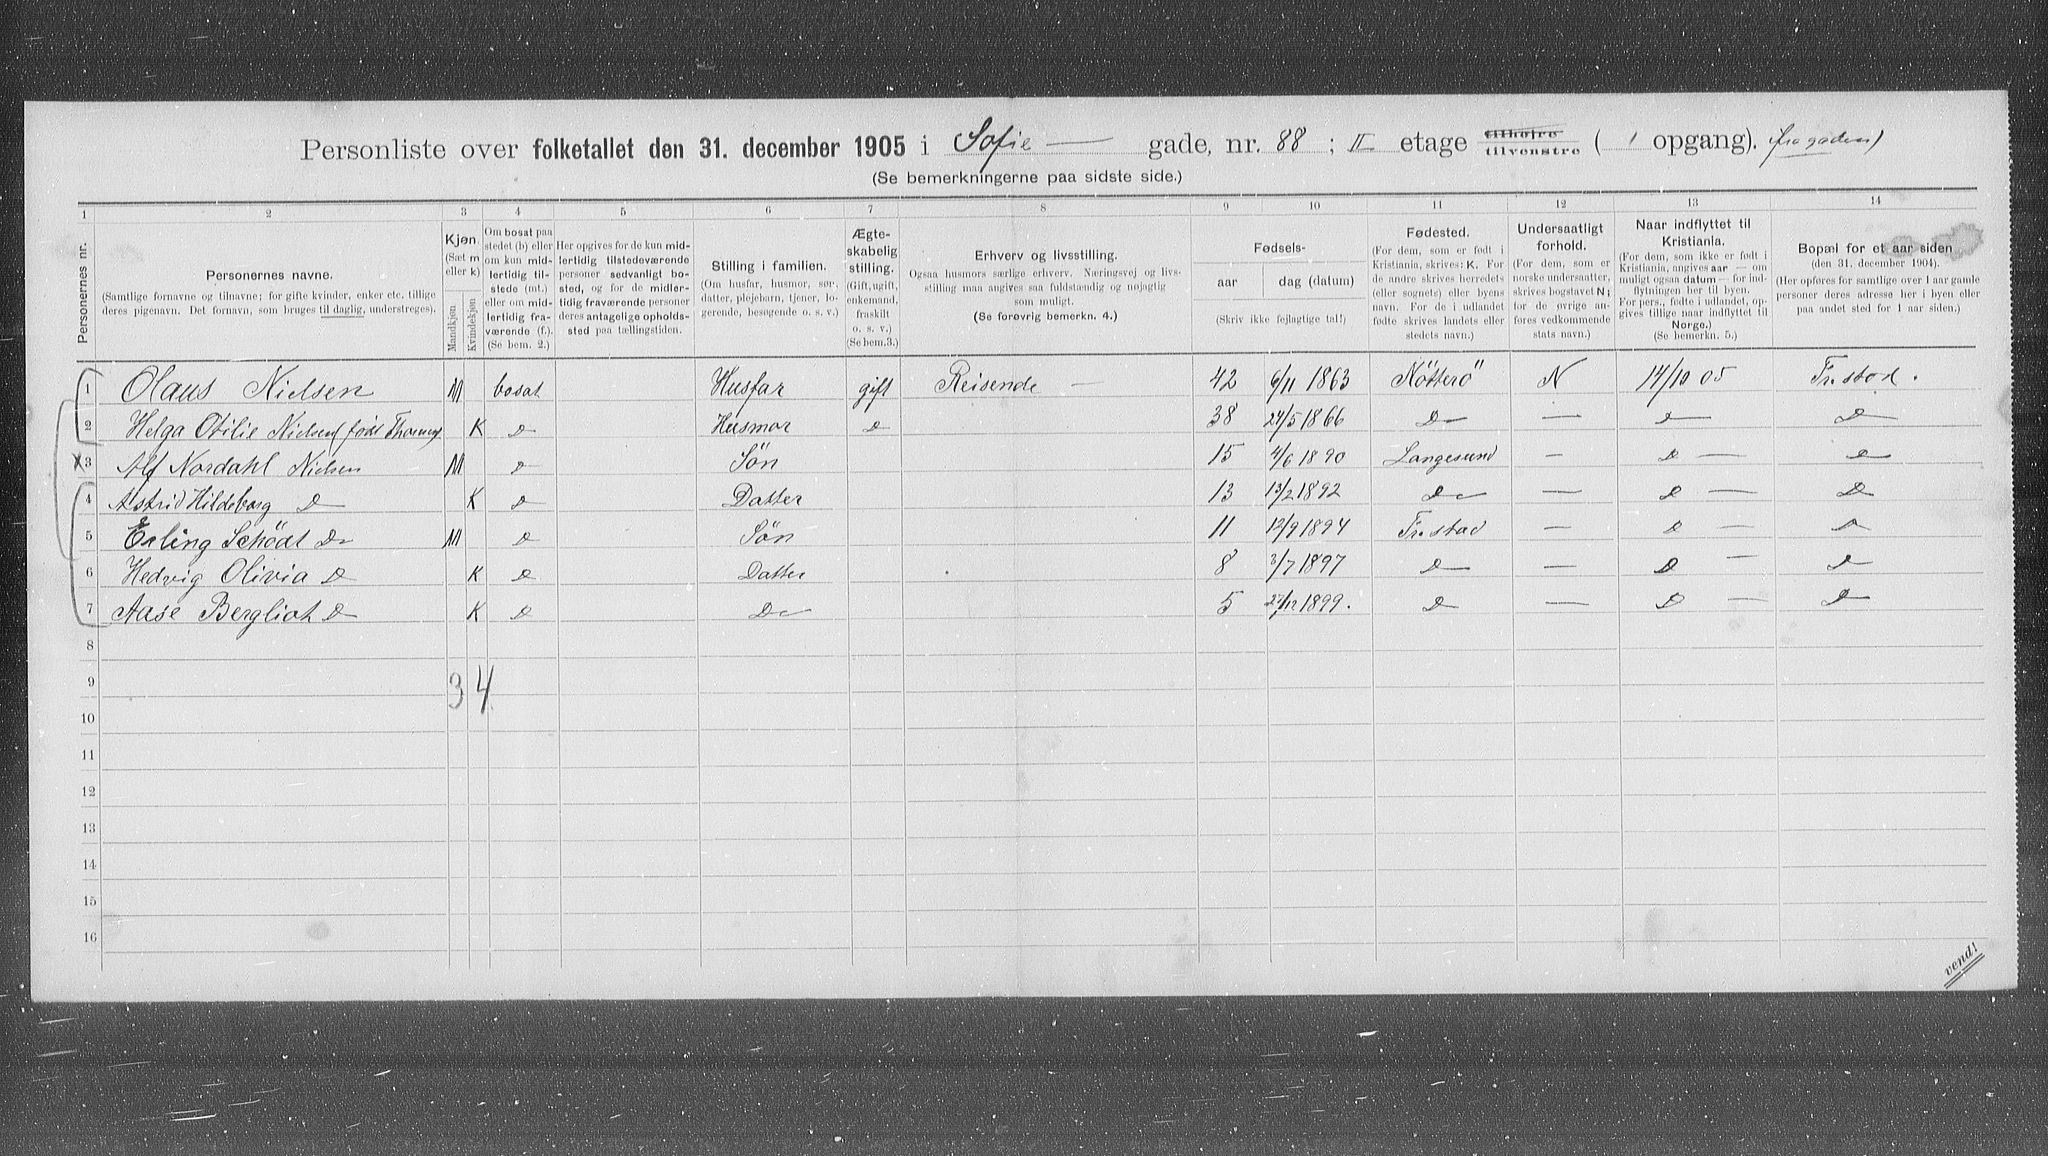 Personliste over folketallet den 31. december 1905 i Sofie — gade, nr. 88 ; II etage tilhøire tilvenstre ( 1 opgang). (fra gaden)
(Se bemerkningerne paa sidste side.)
1 2 3 4 5 6 7 8 9 10 11 12 13 14
Personernes nr.
Personernes navne.
(Samtlige fornavne og tilnavne; for gifte kvinder, enker etc. tillige
deres pigenavn. Det fornavn, som bruges til daglig, understreges).
Kjøn
(Sæt m
eller k)
Mandkjøn
Kvindekjøn
Om bosat paa
stedet (b) eller
om kun mid-
lertidig til-
stede (mt.)
eller om mid-
lertidig fra-
værende (f.).
(Se bem. 2.)
Her opgives for de kun mid-
lertidig tilstedeværende
personer sedvanligt bo-
sted, og for de midler-
tidig fraværende personer
deres antagelige opholds-
sted paa tællingstiden.
Stilling i familien.
(Om husfar, husmor, søn,
datter, plejebarn, tjener, lo-
gerende, besøgende o. s. v.)
Ægte-
skabelig
stilling.
(Gift, ugift,
enkemand,
fraskilt
o. s. v.)
(Se bem. 3.)
Erhverv og livsstilling.
Ogsaa husmors særlige erhverv. Næringsvej og livs-
stilling maa angives saa fuldstændig og nøjagtig
som muligt.
(Se forøvrig bemerkn. 4.)
Fødsels-
aar dag (datum)
(Skriv ikke fejlagtige tal!)
Fødested.
(For dem, som er født i
Kristiania, skrives: K. For
de andre skrives herredets
(eller sognets) eller byens
navn. For de i udlandet
fødte skrives landets eller
stedets navn.)
Undersaatligt
forhold.
(For dem, som er
norske undersaatter,
skrives bogstavet N;
for de øvrige an-
føres vedkommende
stats navn.)
Naar indflyttet til
Kristiania.
(For dem, som ikke er født i
Kristiania, angives aar — om
muligt ogsaa datum — for ind-
flytningen her til byen.
For pers., fødte i udlandet, op-
gives tillige naar indflyttet til
Norge.)
(Se bemerkn. 5.)
Bopæl for et aar siden
(den 31. december 1904).
(Her opføres for samtlige over 1 aar gamle
personer deres adresse her i byen eller
paa andet sted for 1 aar siden.)
1 Olaus Nielsen M bosat Husfar gift Reisende — 42 6/11 1863 Nötterö N 14/10 05 Fr.stad.
2 Helga Otilie Nielsen født K Do Husmor Do 38 24/5 1866 Do — Do Do
3 Alf Nordahl Nielsen M Do Søn 15 4/6 1890 Langesund — Do — Do
4 Astrid Hildeborg Do K Do Datter 13 13/2 1892 Do — Do — Do
5 Erling Schödt Do M Do Søn 11 12/9 1894 Fr.stad — Do — Do
6 Hedvig Olivia Do K Do Datter 8 3/7 1897 Do — Do — Do
7 Aase Bergliot Do K Do Do 5 27/12 1899. Do — Do — Do
8
9 3 4
10
11
12
13
14
15
16
vend!